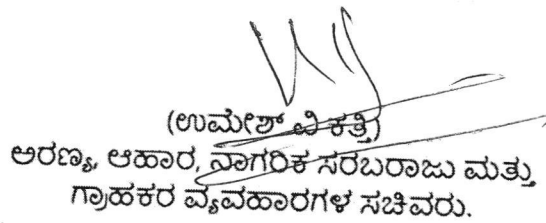 (ಉಮೇಶ್ ವಿ ಕತ್ತಿ)
ಅರಣ್ಯ, ಆಹಾರ, ನಾಗರಿಕ ಸರಬರಾಜು ಮತ್ತು
ಗ್ರಾಹಕರ ವ್ಯವಹಾರಗಳ ಸಚಿವರು.